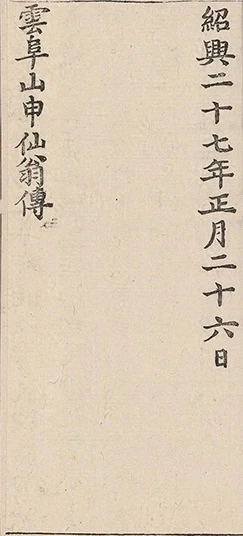 紹興二十七年正月二十六日
雲阜山申仙翁傳